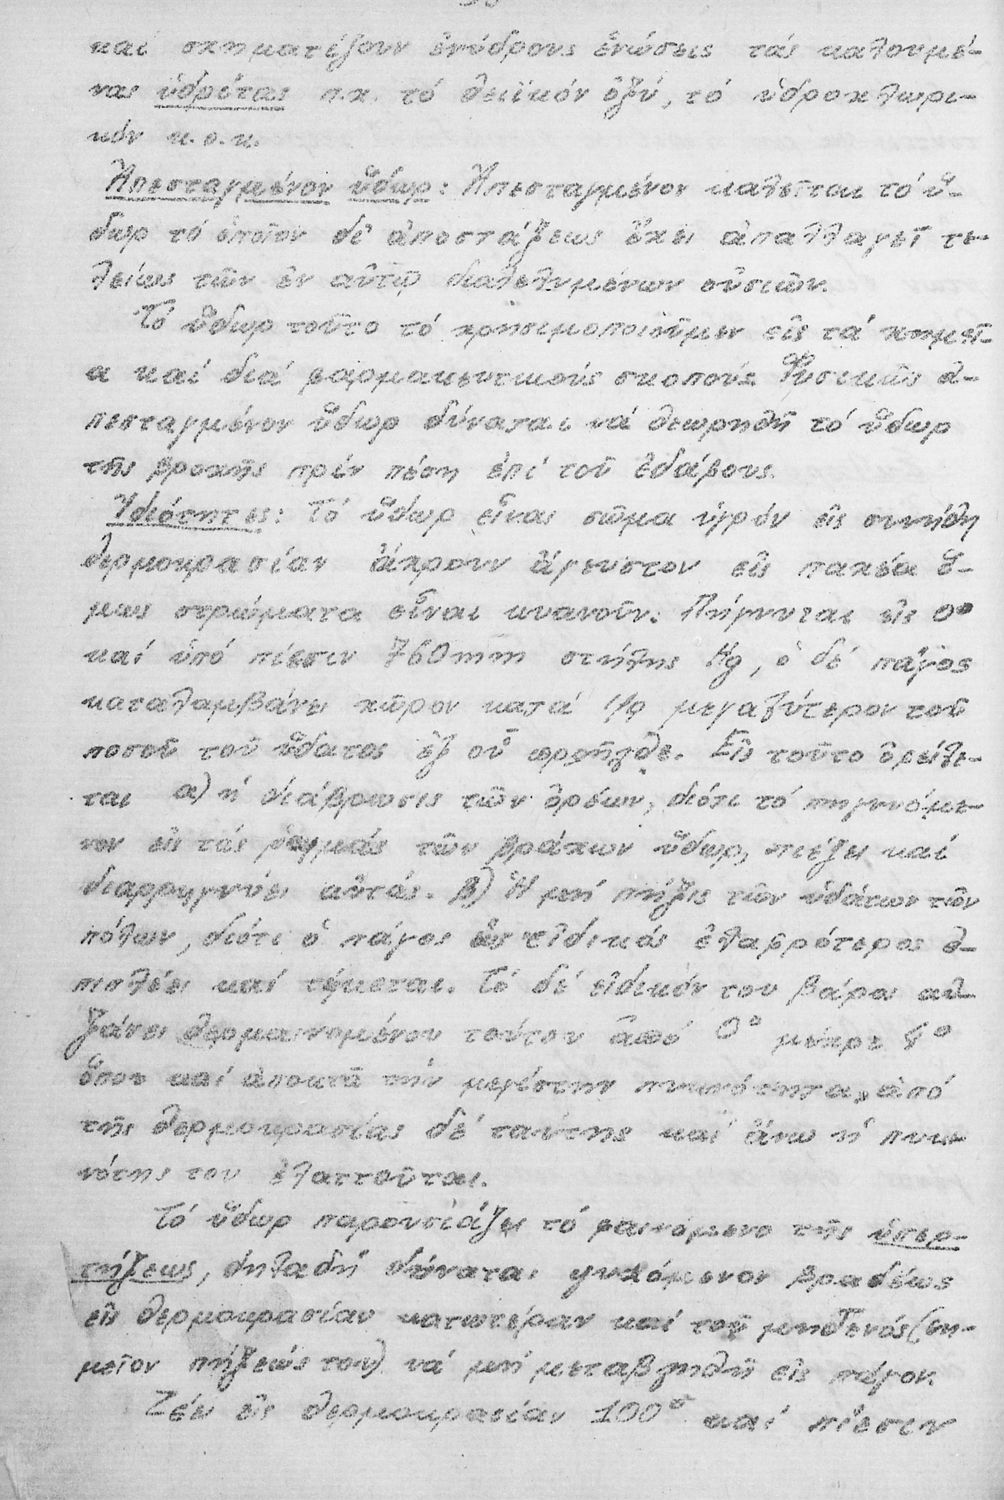 καί σχηματίζουν ἐνύδρους ἑνώσεις τάς καλουμέ-
νας ὑδρίτας π.χ. τό θειϊκόν ὀξύ, τό ὑδροχλωρι-
κόν κ.ο.κ.
Ἀπεσταγμένον ὕδωρ: Ἀπεσταγμένον καλεῖται τό ὕ-
δωρ τό ὁποῖον δι' ἀποστάξεως ἔχει ἀπαλλαγεῖ τε-
λείως τῶν ἐν αὐτῷ διαλελυμένων οὐσιῶν.
Τό ὕδωρ τοῦτο τό χρησιμοποιοῦμεν εἰς τά χημεῖ-
α καί διά φαρμακευτικούς σκοπούς. Φυσικῶς ἀ-
πεσταγμένον ὕδωρ δύναται νά θεωρηθῆ τό ὕδωρ
τῆς βροχῆς πρίν πέση ἐπί τοῦ ἐδάφους.
Ἰδιότητες: Τό ὕδωρ εἶναι σῶμα ὑγρόν εἰς συνήθη
θερμοκρασίαν ἄχρουν ἄγευστον εἰς παχέα ὅ-
μως στρώματα εἶναι κυανοῦν. Πήγνυται εἰς 0°
καί ὑπό πίεσιν 760mm στήλης Hg, ὁ δέ πάγος
καταλαμβάνει χῶρον κατά 1/9 μεγαλύτερον τοῦ
ποσοῦ τοῦ ὕδατος ἐξ οὗ προῆλθε. Εἰς τοῦτο ὀφείλε-
ται α) ἡ διάβρωσις τῶν ὀρέων, διότι τό πηγνυόμε-
νον εἰς τάς ρωγμάς τῶν βράχων ὕδωρ, πιέζει καί
διαρρηγνύει αὐτάς. β) Ἡ μή πῆξις τῶν ὑδάτων τῶν
πόλων, διότι ὁ πάγος ὡς εἰδικῶς ἐλαφρότερος ἐ-
πιπλέει καί τήκεται. Τό δέ εἰδικόν του βάρος αὐ-
ξάνει θερμαινομένου τούτου ἀπό 0° μέχρι 4°
ὅπου καί ἀποκτᾶ τήν μεγίστην πυκνότητα, ἀπό
τῆς θερμοκρασίας δέ ταύτης καί ἄνω ἡ πυκ-
νότης του ἐλαττοῦται.
Τό ὕδωρ παρουσιάζει τό φαινόμενο τῆς ὑπερ-
τήξεως, δηλαδή δύναται ψυχόμενον βραδέως
εἰς θερμοκρασίαν κατωτέραν καί τοῦ μηδενός (ση-
μεῖον πήξεώς του) νά μή μεταβληθῆ εἰς πάγον.
Ζέει εἰς θερμοκρασίαν 100° καί πίεσιν